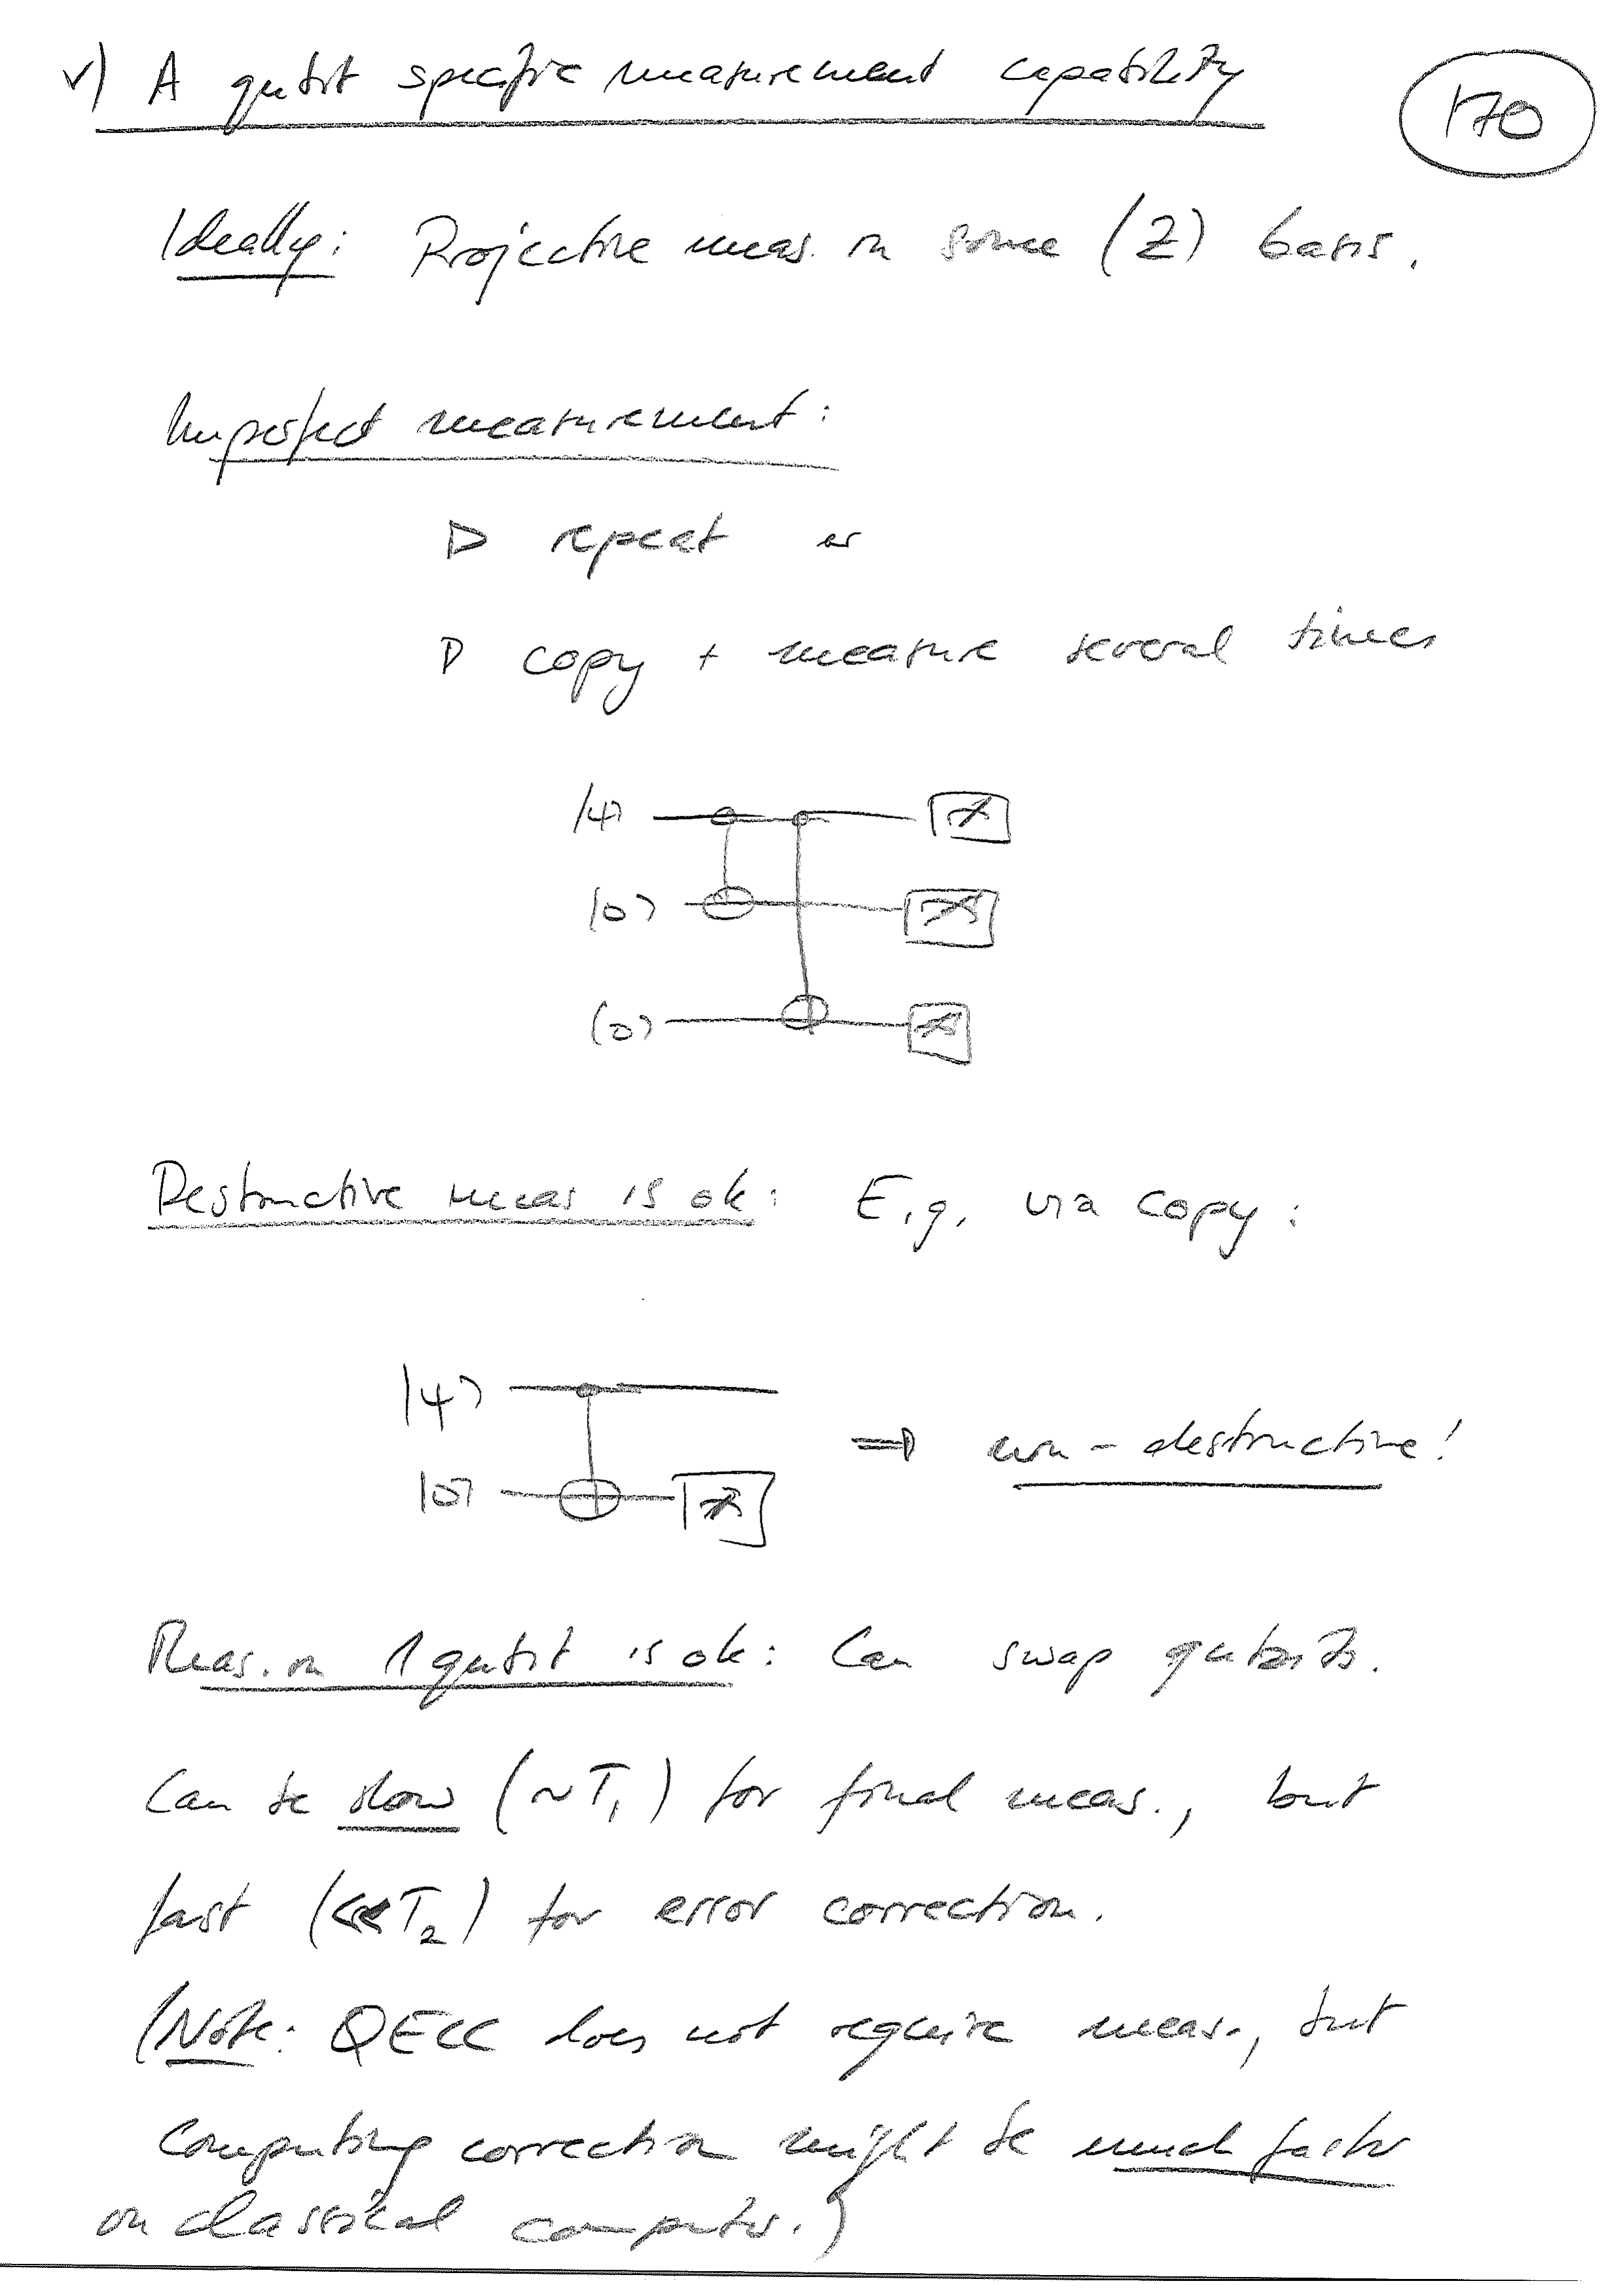 v) A qubit specific measurement capability
170
Ideally: Projective meas. in some (Z) basis.
Imperfect measurement:
▷ repeat or
▷ copy + measure several times
|ψ⟩
|0⟩
|0⟩
Destructive meas is ok: E.g. via copy:
|ψ⟩
|0⟩
⇒ non-destructive!
Meas. on 1 qubit is ok: Can swap qubits.
Can be slow (~T₁) for final meas., but
fast (≪T₂) for error correction.
(Note: QECC does not require meas., but
computing correction might be much faster
on classical computer.)